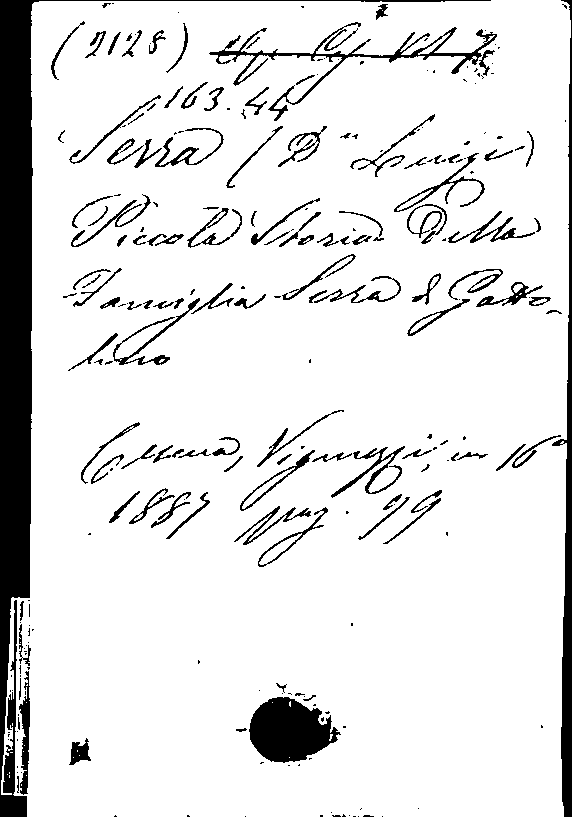 (2128) Op. Ces. Vol 7
163.44
Serra (Dn Luigi)
Piccola Storia Della
Famiglia Serra di Gatto-
lino
Cesena, Vignuzzi, in 16°
1887 pag. 99